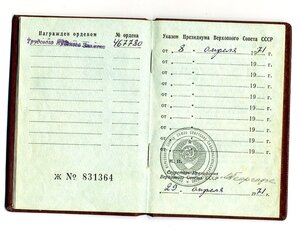 Награжден орденом
№ ордена
Трудового Красного Знамени 467730
Ж № 831364
Указом Президиума Верховного Совета СССР
от 8 апреля 1971 г.
от 19 г.
от 19 г.
от 19 г.
от 19 г.
от 19 г.
от 19 г.
от 19 г.
от 19 г.
М. П.
Секретарь Президиума
Верховного Совета
29 апреля 1971 г.